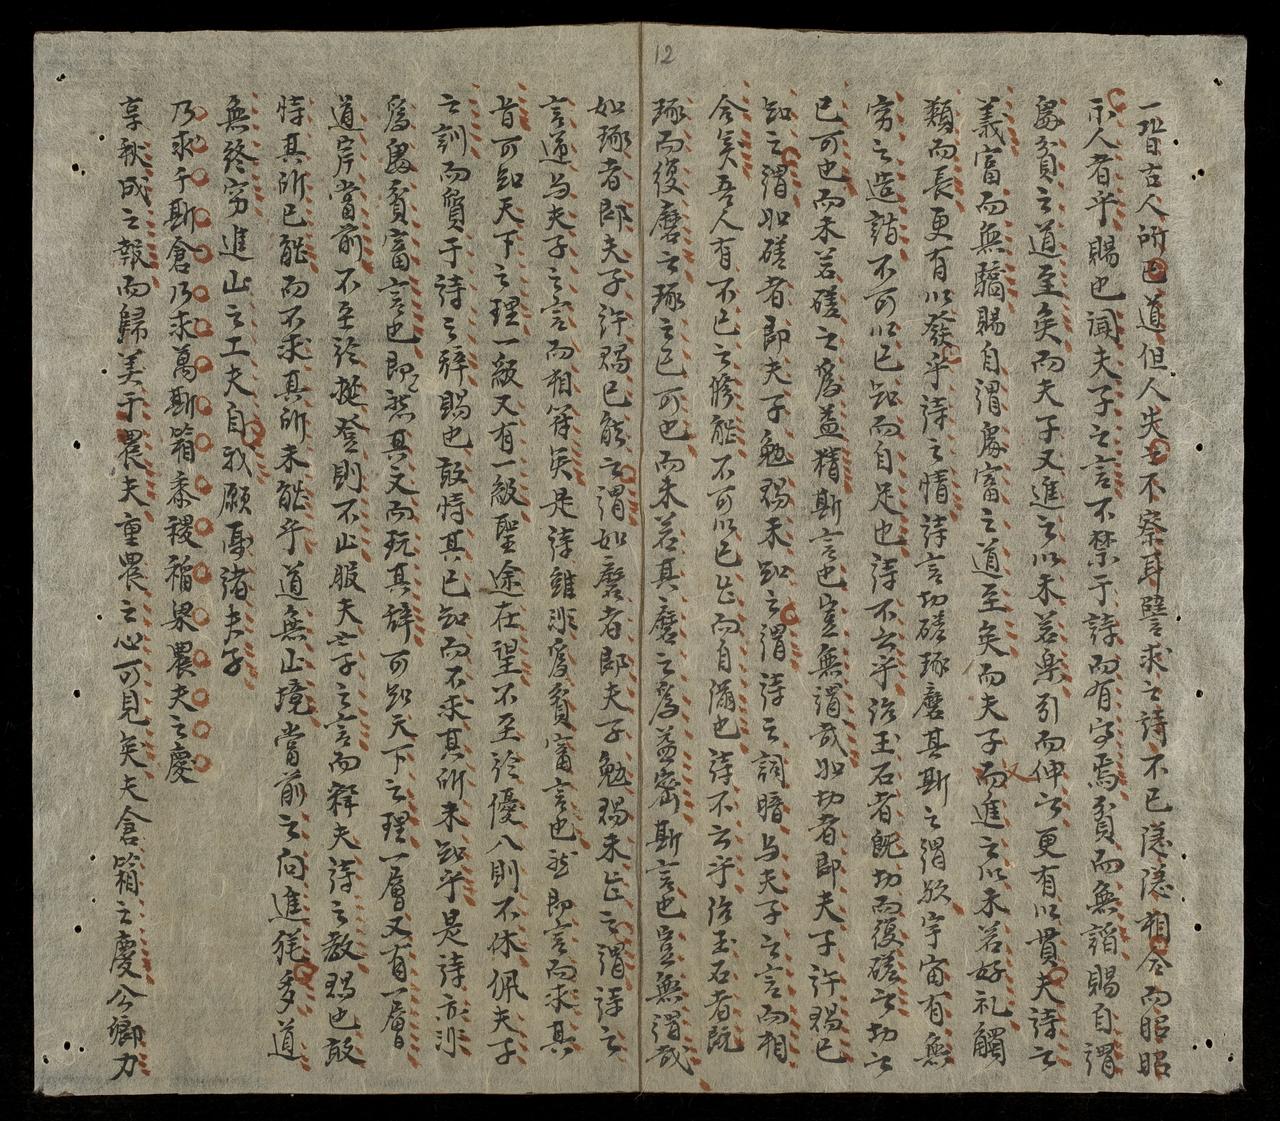 一理昔古人所已道但人失之不察耳譬求之詩不已隱隱相合而昭昭
示人者乎賜也聞夫子之言不禁于詩而有字焉貧而無諂賜自謂
處貧之道至矣而夫子又進之以未若樂引而伸之更有以貫夫詩之
義富而無驕賜自謂處富之道至矣而夫子而進之以未若好礼觸
類而長更有以發乎詩之情詩言切磋琢磨其斯之謂欤宇宙有無
窮之造詣不可以已知而自足也詩不云乎治玉石者既切而復磋之切之
已可也而未若磋之爲益精斯言也豈無謂哉如切者即夫子許賜已
知之謂如磋者即夫子勉賜未知之謂詩之詞暗与夫子之言而相
合矣吾人有不已之修能不可以已足而自滿也詩不云乎治玉石者既
琢而復磨之琢之已可也而未若其磨之爲益密斯言也豈無謂哉
如琢者即夫子許賜已能之謂如磨者即夫子勉賜未能之謂詩之
言遞与夫子之言而相符矣是詩雖非爲貧富言也然即言而求其
旨可知天下之理一級又有一級聖途在望不至於優入則不休佩夫子
之訓而質于詩之辞賜也敢恃其已知而不求其所未知乎是詩亦非
爲處貧富言也即然其文而玩其辞可知天下之理一層又有一層
道岸當前不至於誕登則不止服夫子之言而释夫詩之教賜也敢
恃其所已能而不求其所未能乎道無止境當前之向進猶多道
無終窮進止之工夫自我願憂諸夫子
乃求千斯倉乃求萬斯箱黍稷稻梁農夫之慶
享秋成之報而歸美于農夫重農之心可見矣夫倉箱之慶公卿力